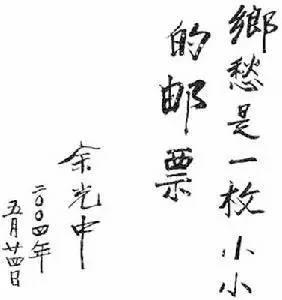 鄉愁是一枚小小
的邮票
余光中
二〇〇四年
五月廿四日